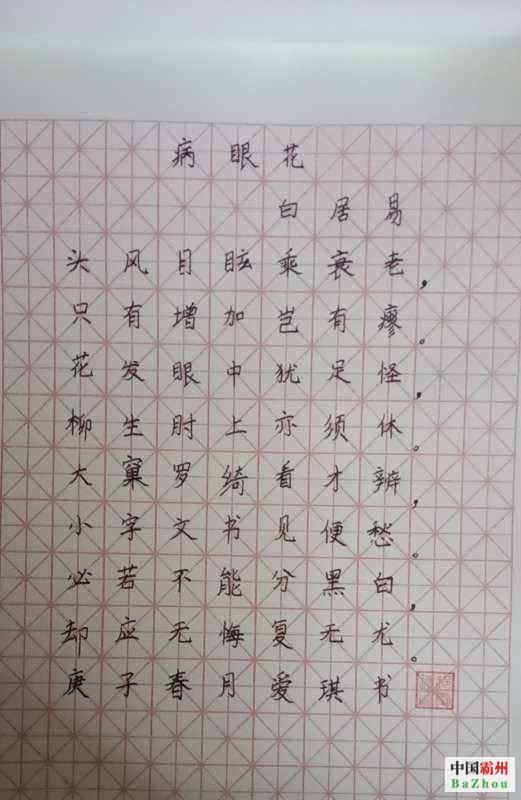 病眼花
白居易
头风目眩乘衰老，
只有增加岂有瘳。
花发眼中犹足怪，
柳生肘上亦须休。
大窠罗绮看才辨，
小字文书见便愁。
必若不能分黑白，
却应无悔复无尤。
庚子春月爱琪书
中国霸州
BaZhou